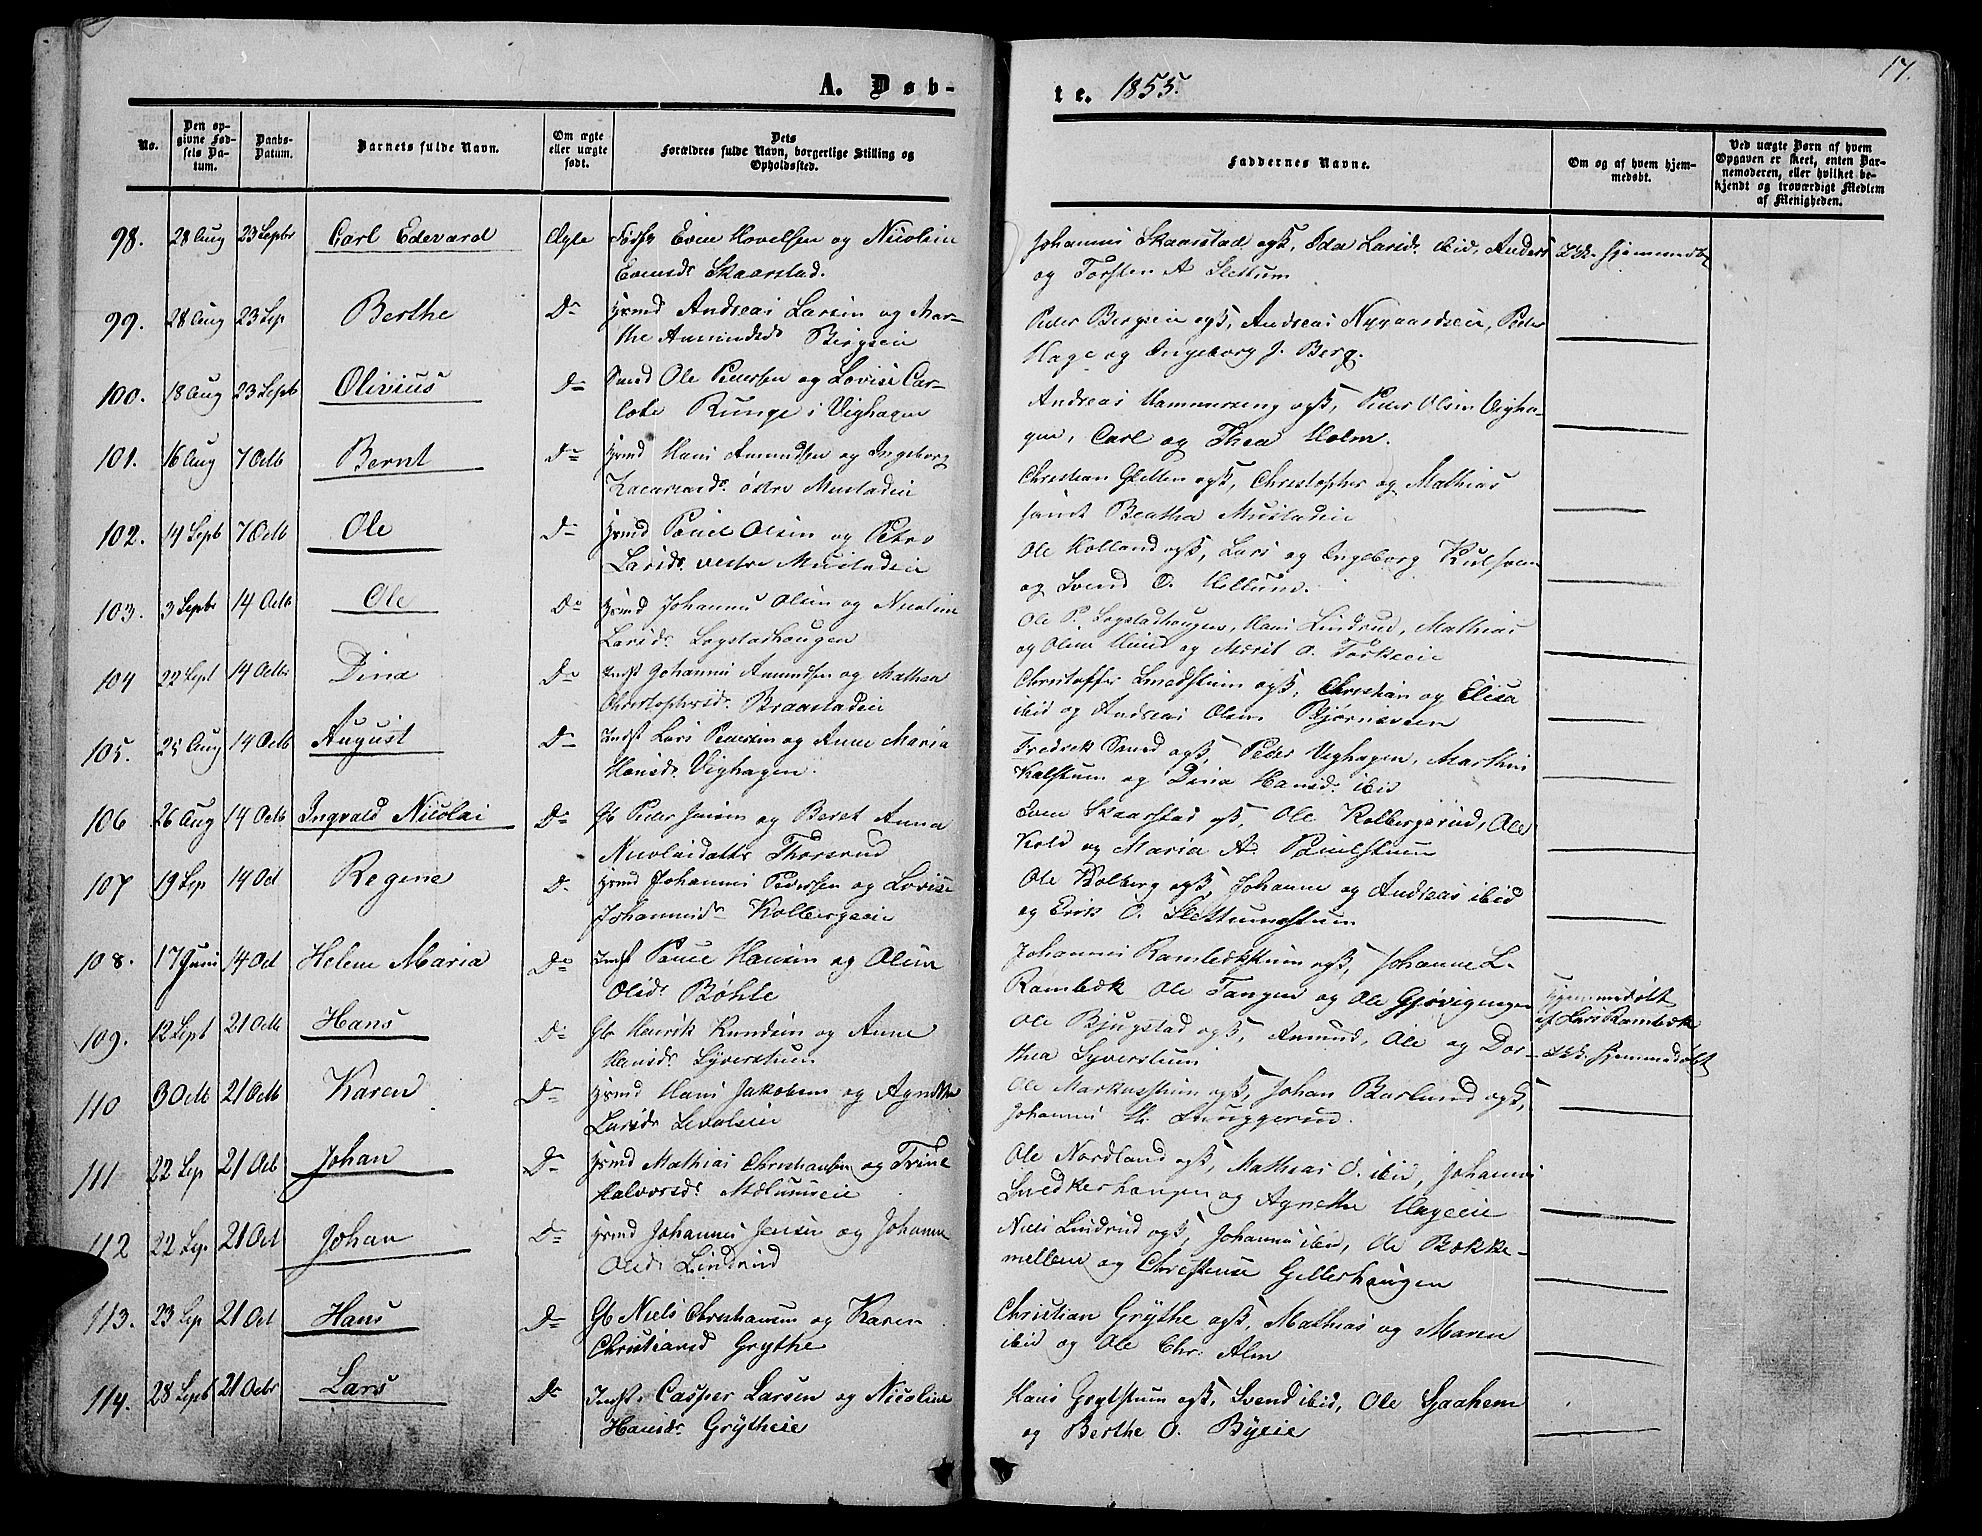 A. Døb-
te. 1855.
17.
No.
Den op-
givne Fød-
sels Da-
tum.
Daabs-
Datum.
Barnets fulde Navn.
Om ægte
eller uægte
født.
Dets
Forældres fulde Navn, borgerlige Stilling og
Opholdssted.
Faddernes Navne.
Om og af hvem hjem-
medøbt.
Ved uægte Børn af hvem
Opgaven er skeet, enten Bar-
nemoderen, eller hvilket be-
kjendt og troværdigt Medlem
af Menigheden.
98. 28 Aug 23 Septbr Carl Edevard Ægte Even Hovelsen og Nicoline
Evensd. Skaarstad.
Johannes Skaarstad ogs, Ida Larsd. ibid, Anders
og Torsten A Slettum
Ikk. hjemmedøbt
99. 28 Aug 23 Sep Berthe Do Hrmd Andreas Larsen og Mar-
the Amundsd Bergseie
Peder Bergseie ogs, Andreas Nygaardseie, Peder
Hage og Ingeborg J. Berg.
100. 18 Aug 23 Septb Olivius Do Smed Ole Pedersen og Lovise Car-
lote Runge i Vighagen
Andreas Hammerseng ogs, Peder Olsen Vigha-
gen, Carl og Thea Holm.
101. 16 Aug 7 Octb Bernt Do Hrmd Hans Amundsen og Ingeborg
Zacariasd. østre Mustadeie
Christian Sletten ogs, Christopher og Mathias
samt Beatha Mustadeie
102. 14 Septb 7 Octb Ole Do Hrmd Povel Olsen og Petro
Larsd. vestre Mustadeie
Ole Kolland ogs, Lars og Ingeborg
og Svend O. Hellund.
103. 3 Septbr 14 Octb Ole Do Hrmd Johannes Olsen og Nicoline
Larsd. Sogstadhaugen
Ole P. Sogstadhaugen, Hans Lindrud, Mathias
og Oline Hund og Marit O.
104 22 Sept 14 Octbr Dina Do Indst Johannes Amundsen og Mathea
Christophersd. Braastadeie
Christoffer Smedstuen ogs, Christian og Elisa
ibid og Andreas Olsen Bjørnsveen
105. 25 Aug 14 Octb August Do Indst Lars Pedersen og Anne Maria
Hansd. Vighagen.
Fredrek Smed ogs, Peder Vighagen, Marthin
Kalstuen og Dina Hansd. ibid
106 26 Aug 14 Octb Ingvald Nicolai Do Gb Peder Jensen og Beret Anna
Nicolaidatter Thorsrud
Even Skaarstad ogs, Ole Kolbergsrud, Ole
Kold og Maria A. Poulstuen
107 19 Sep 14 Oct Regine Do Hrmd Johannes Pedersen og Lovise
Johannesd. Kolbergseie
Ole Kolberg ogs, Johanne og Andreas ibid
og Erik O. Slettumstuen
108. 17 Juni 14 Oct Helene Maria Do Indst Povel Hansen og Oline
Olsd. Bøhle
Johannes Rambekstuen ogs, Johanne L.
Rambek Ole Tangen og Ole Gjøvigengen
Hjemmedøbt
af Lars Rambek
109. 12 Sept 21 Octb Hans Do Gb Henrik Knudsen og Anne
Hansd. Syverstuen
Ole Bjugstad ogs, Amund, Ole og Dor-
thea Syverstuen
Ikk. hjemmedøbt
110 3 Octb 21 Octb Karen Do Hrmd Hans Jakobsen og Agnethe
Larsd. Sevalseie
Ole Markusstuen ogs, Johan Barlund ogs,
Johannes Snuggerud.
111 22 Sep 21 Oct Johan Do Hrmd Mathias Christiansen og Trine
Halvorsd. Mælumseie
Ole Nordland ogs, Mathias O. ibid, Johannes
Snedkerhaugen og Agnethe Hageeie
112 22 Sep. 21 Oct Johan Do Hrmd Johannes Jensen og Johanne
Olsd. Lindrud
Niels Lindrud ogs, Johannes ibid, Ole Bække-
mellem og Christense Gellerhaugen
113. 23 Sep 21 Oct Hans Do Gb Niels Christiansen og Karen
Christiansd Grythe
Christian Grythe ogs, Mathias og Maren
ibid og Ole Chr. Alm
114. 28 Septb 21 Octbr Lars Do Indst. Casper Larsen og Nicoline
Hansd. Grytheeie
Hans Grytstuen ogs, Svend ibid, Ole Sjaahem
og Berthe O. Byeie